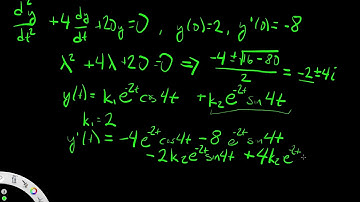 d²y/dt² + 4 dy/dt + 20y = 0, y(0)=2, y'(0)=-8
λ² + 4λ + 20 = 0 ⇒ (-4 ± √(16-80))/2 = -2 ± 4i
y(t) = k₁e^(-2t) cos4t + k₂e^(-2t) sin4t
k₁ = 2
y'(t) = -4e^(-2t) cos4t - 8 e^(-2t) sin4t
-2k₂e^(-2t) sin4t + 4k₂e^(-2t)